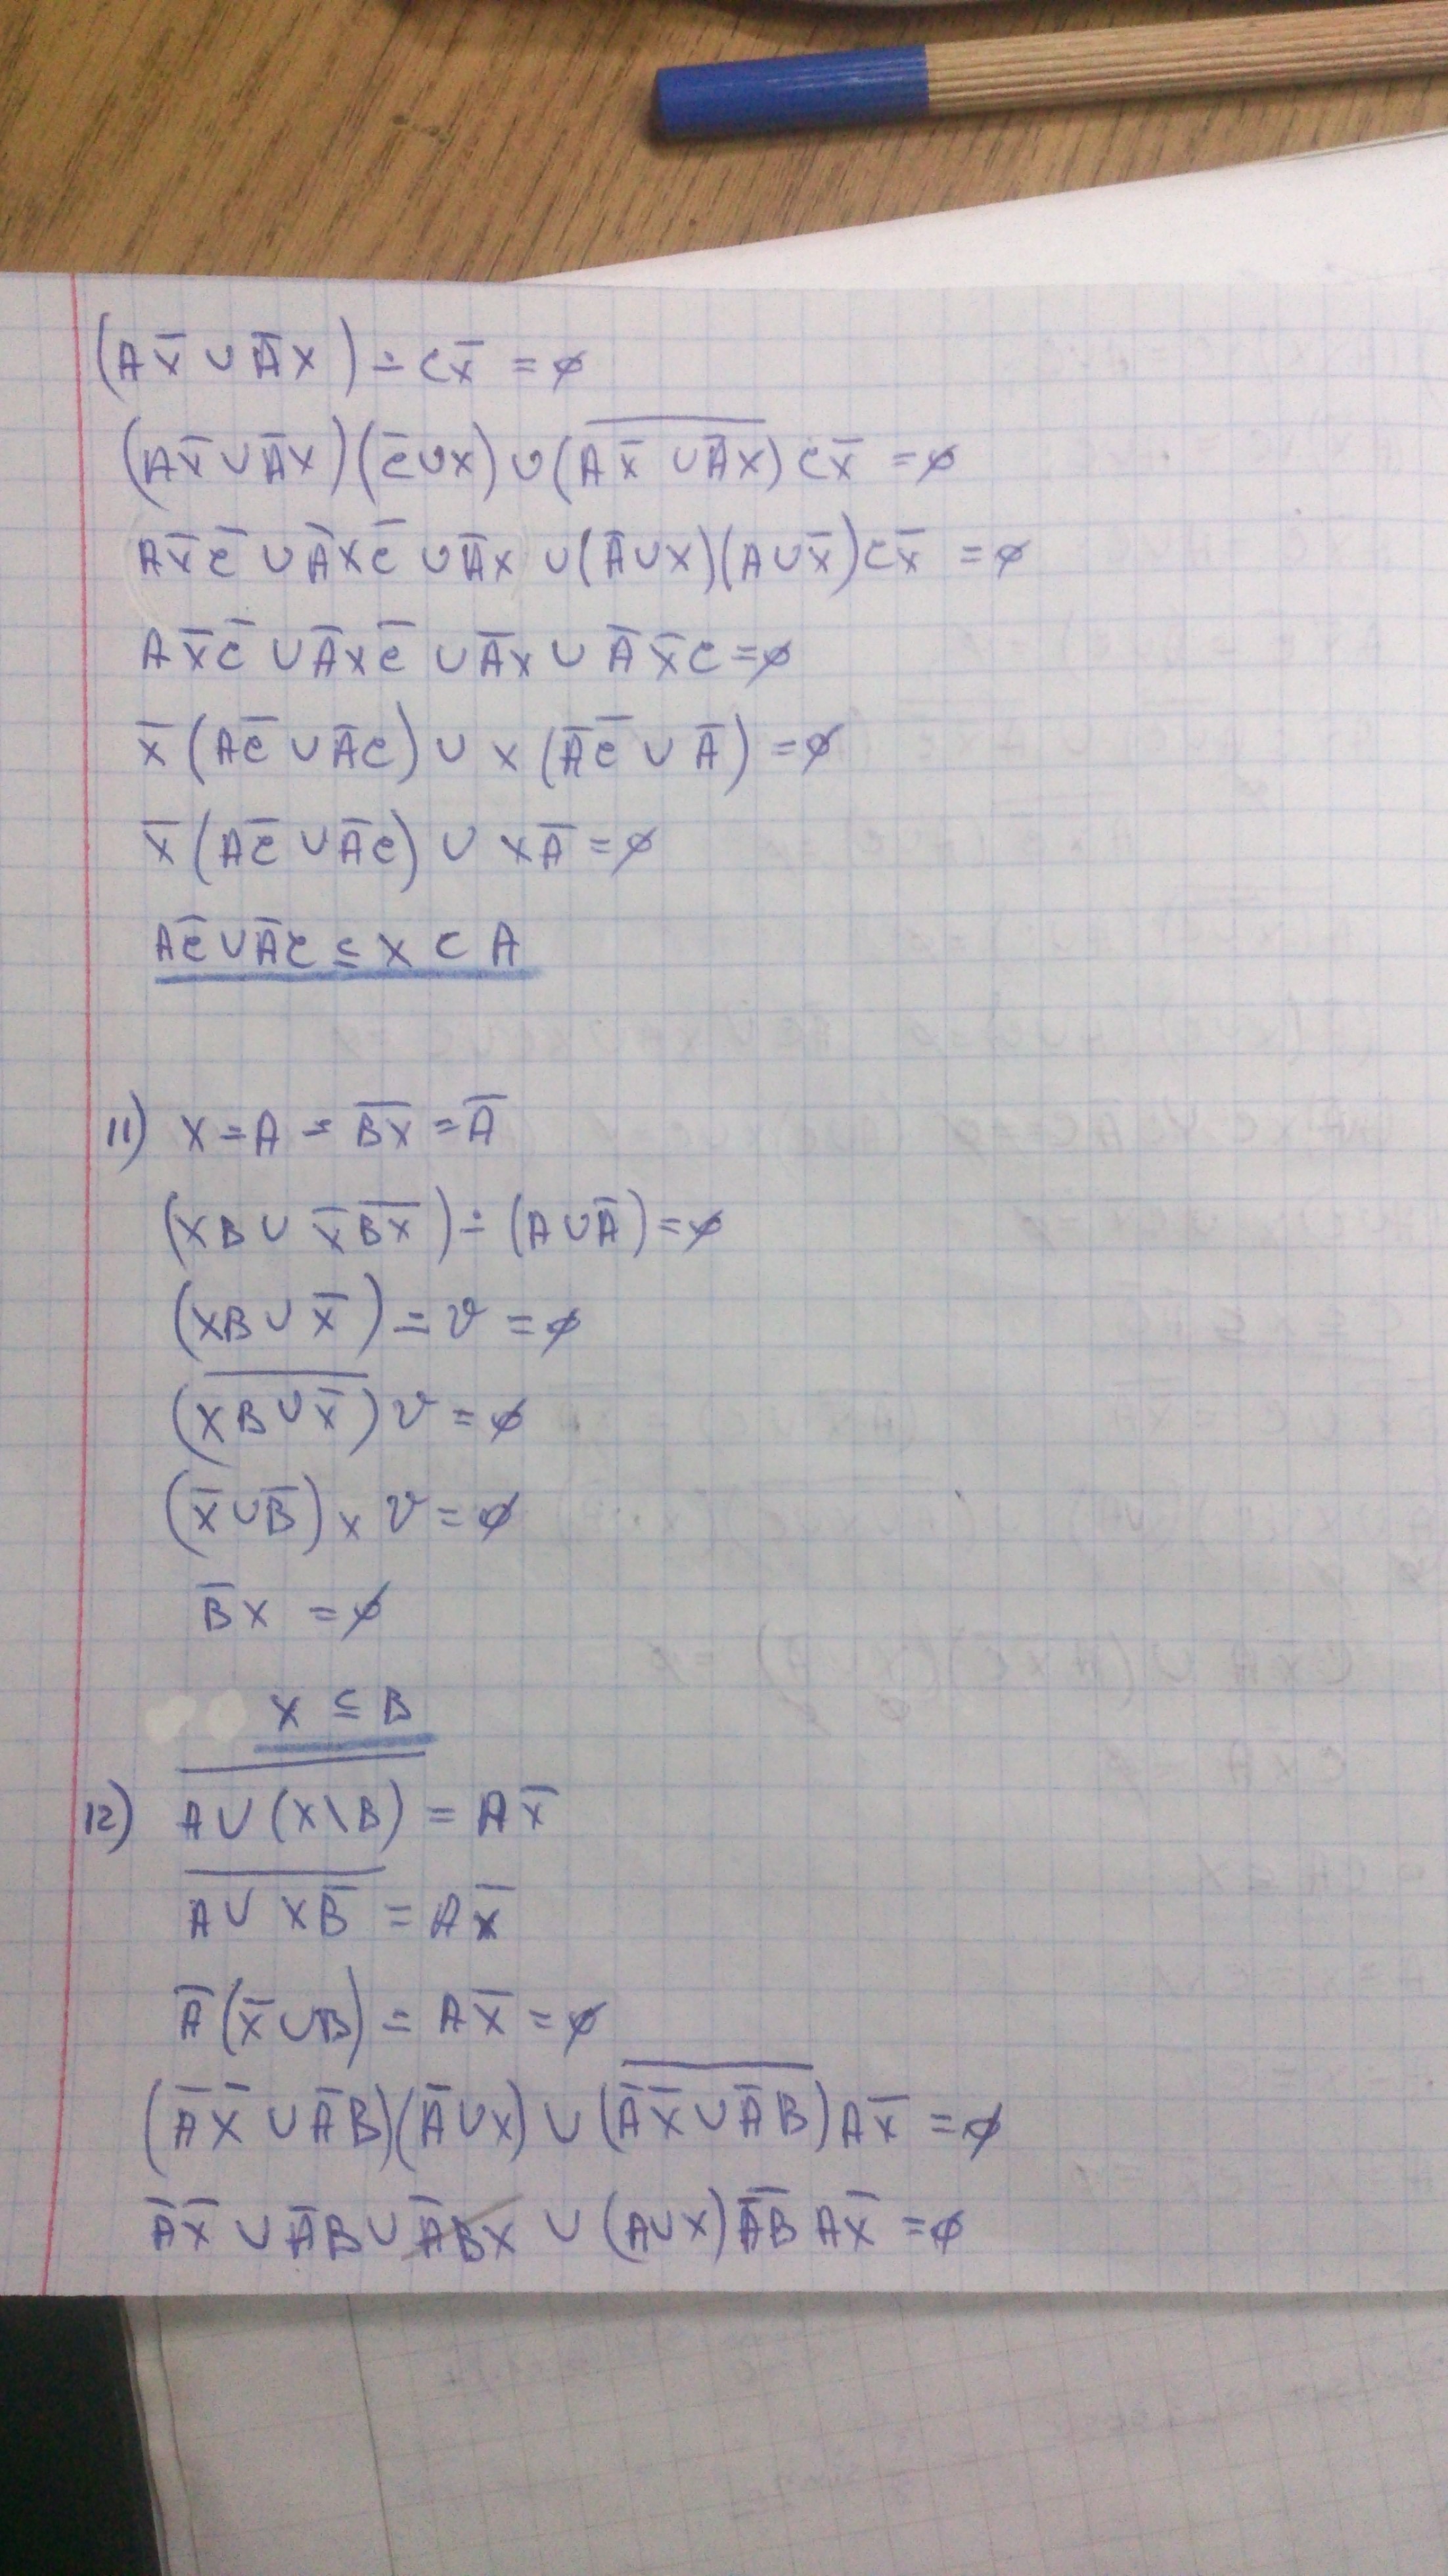 (Ax̅ ∪ A̅x) ∸ Cx̅ = ∅
(Ax̅ ∪ A̅x)(C̅ ∪ x) ∪ (\overline{Ax̅ ∪ A̅x}) Cx̅ = ∅
Ax̅C̅ ∪ A̅xC̅ ∪ A̅x ∪ (A̅ ∪ x)(A ∪ x̅)Cx̅ = ∅
Ax̅C̅ ∪ A̅xC̅ ∪ A̅x ∪ A̅x̅C = ∅
x̅(AC̅ ∪ A̅C) ∪ x(A̅C̅ ∪ A̅) = ∅
x̅(AC̅ ∪ A̅C) ∪ xA̅ = ∅
AC̅ ∪ A̅C ⊆ x ⊂ A
11) x ∸ A ∸ \overline{Bx} = A̅
(xB ∪ x̅\overline{Bx}) ∸ (A ∪ A̅) = ∅
(xB ∪ x̅) ∸ U = ∅
(\overline{xB ∪ x̅})U = ∅
(x̅ ∪ B̅)x U = ∅
B̅x = ∅
x ⊆ B
12) \overline{A ∪ (x \ B)} = Ax̅
\overline{A ∪ xB̅} = Ax̅
A̅(x̅ ∪ B) ∸ Ax̅ = ∅
(A̅x̅ ∪ A̅B)(A̅ ∪ x) ∪ (\overline{A̅x̅ ∪ A̅B})Ax̅ = ∅
A̅x̅ ∪ A̅B ∪ A̅Bx ∪ (A ∪ x)\overline{A̅B} Ax̅ = ∅